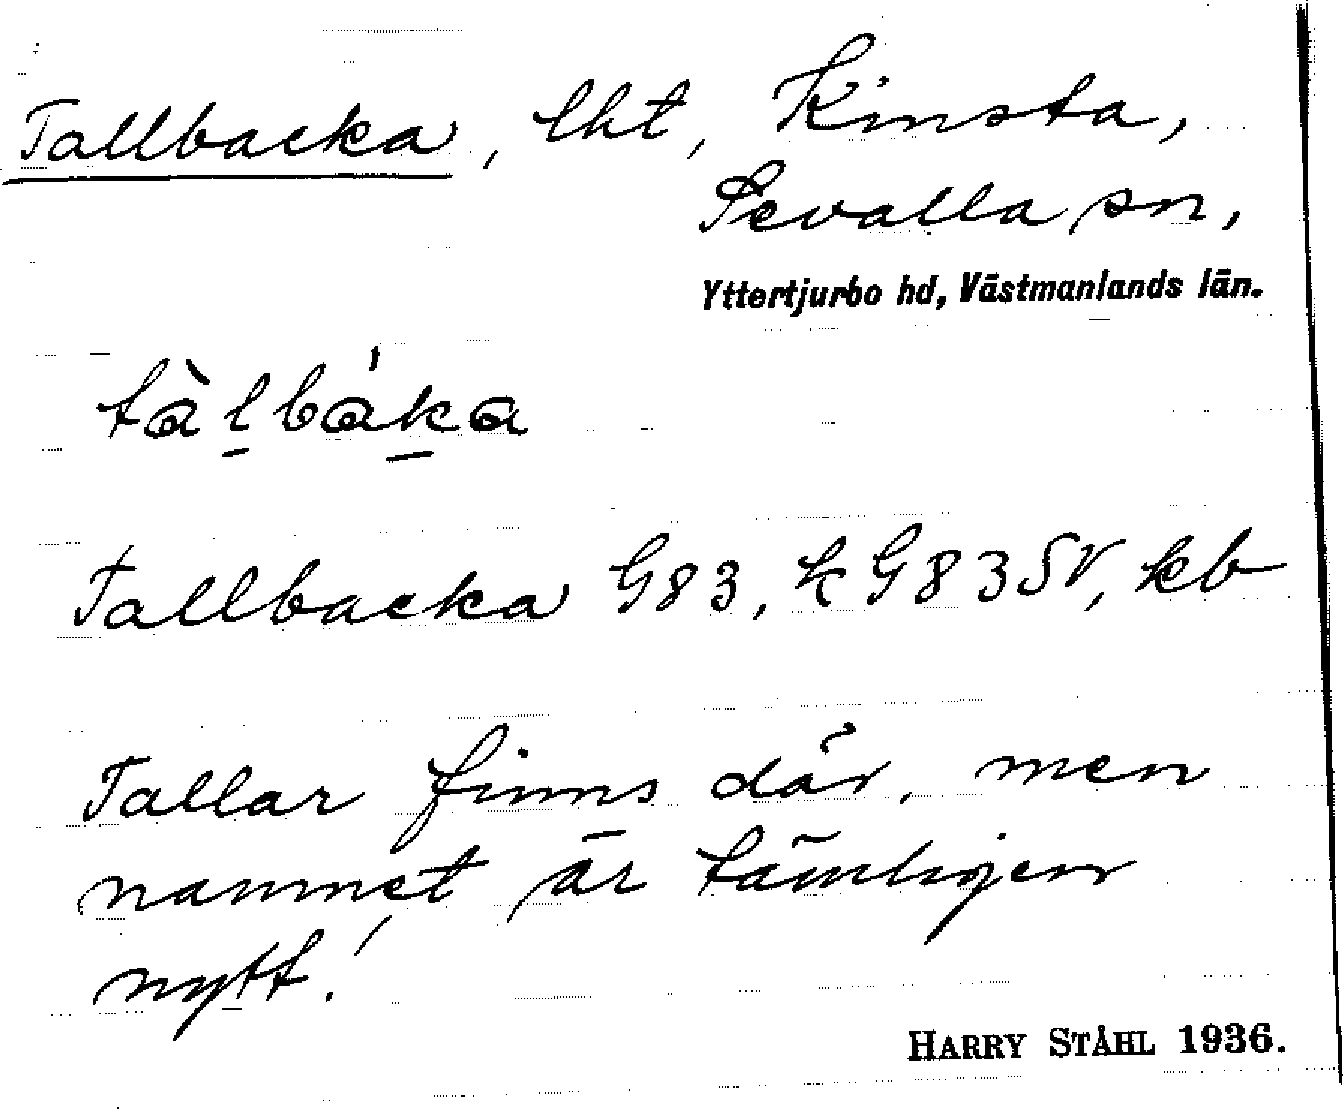 Tallbacka, lht, Kinsta,
Sevalla sn,
Yttertjurbo hd, Västmanlands län.
tàl̠bák̠a
Tallbacka G83, k G83SV, kb
Tallar finns där, men
namnet är tämligen
nytt!
HARRY STÅHL 1936.